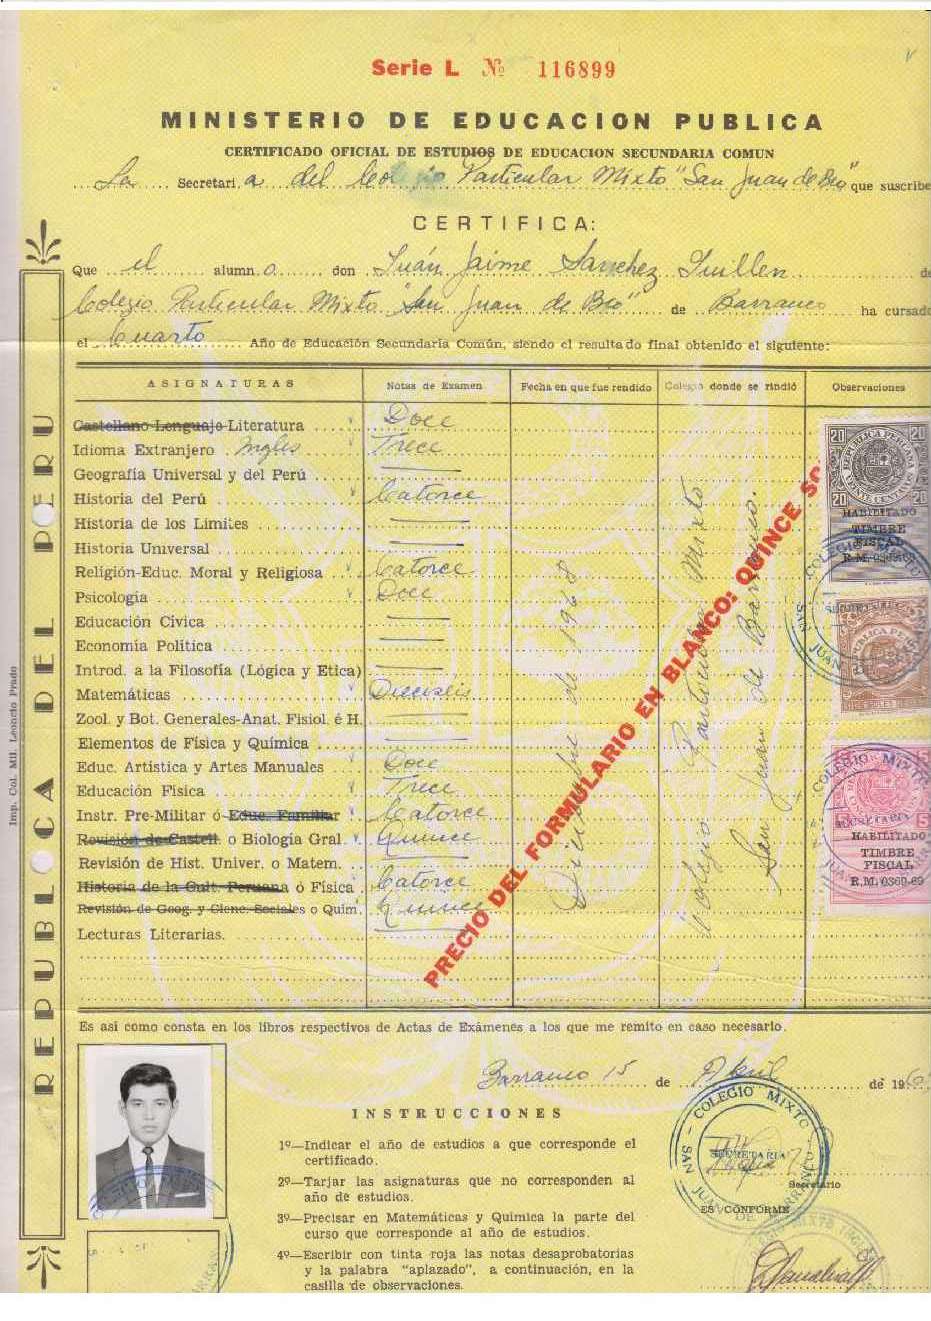 Serie L Nº 116899
MINISTERIO DE EDUCACION PUBLICA
CERTIFICADO OFICIAL DE ESTUDIOS DE EDUCACION SECUNDARIA COMUN
La Secretaria del Colegio Particular Mixto "San Juan de Bco" que suscribe
CERTIFICA:
Que el alumno don Juán Jaime Sanchez Guillen de
Colegio Particular Mixto "San Juan de Bco" de Barranco ha cursado
el Cuarto Año de Educación Secundaria Común, siendo el resultado final obtenido el siguiente:
ASIGNATURAS Notas de Examen Fecha en que fue rendido Colegio donde se rindió Observaciones
Castellano-Lenguaje-Literatura Doce
Idioma Extranjero Ingles Trece
Geografía Universal y del Perú
Historia del Perú Catorce
Historia de los Límites
Historia Universal
Religión-Educ. Moral y Religiosa Catorce
Psicología Doce
Educación Cívica
Economía Política
Introd. a la Filosofía (Lógica y Etica)
Matemáticas Dieciseis
Zool. y Bot. Generales-Anat. Fisiol. é H.
Elementos de Física y Química
Educ. Artística y Artes Manuales Doce
Educación Física Trece
Instr. Pre-Militar ó Educ. Familiar Catorce
Revisión de Castell. o Biología Gral. Quince
Revisión de Hist. Univer. o Matem.
Historia de la Cult. Peruana ó Física Catorce
Revisión de Geog. y Cienc. Sociales o Quím. Quince
Lecturas Literarias.
Diciembre de 1968
Colegio Particular Mixto
San Juan de Barranco.
PRECIO DEL FORMULARIO EN BLANCO: QUINCE SO
20 20
REPUBLICA PERUANA
VEINTE CENTAVOS
20 20
HABILITADO
TIMBRE
FISCAL
R.M. 0360-69
COLEGIO MIXTO
SECRETARIA
SAN JUAN
COLEGIO MIXTO
SECRETARIA
HABILITADO
TIMBRE
FISCAL
R.M. 0360-69
REPUBLICA DEL PERU
Imp. Col. Mil. Leoncio Prado
Es asi como consta en los libros respectivos de Actas de Exámenes a los que me remito en caso necesario.
Barranco 15 de Abril de 196
INSTRUCCIONES
1º—Indicar el año de estudios a que corresponde el
certificado.
2º—Tarjar las asignaturas que no corresponden al
año de estudios.
3º—Precisar en Matemáticas y Química la parte del
curso que corresponde al año de estudios.
4º—Escribir con tinta roja las notas desaprobatorias
y la palabra "aplazado", a continuación, en la
casilla de observaciones.
COLEGIO MIXTO
SECRETARIA
SAN JUAN DE BARRANCO
Secretario
ES CONFORME